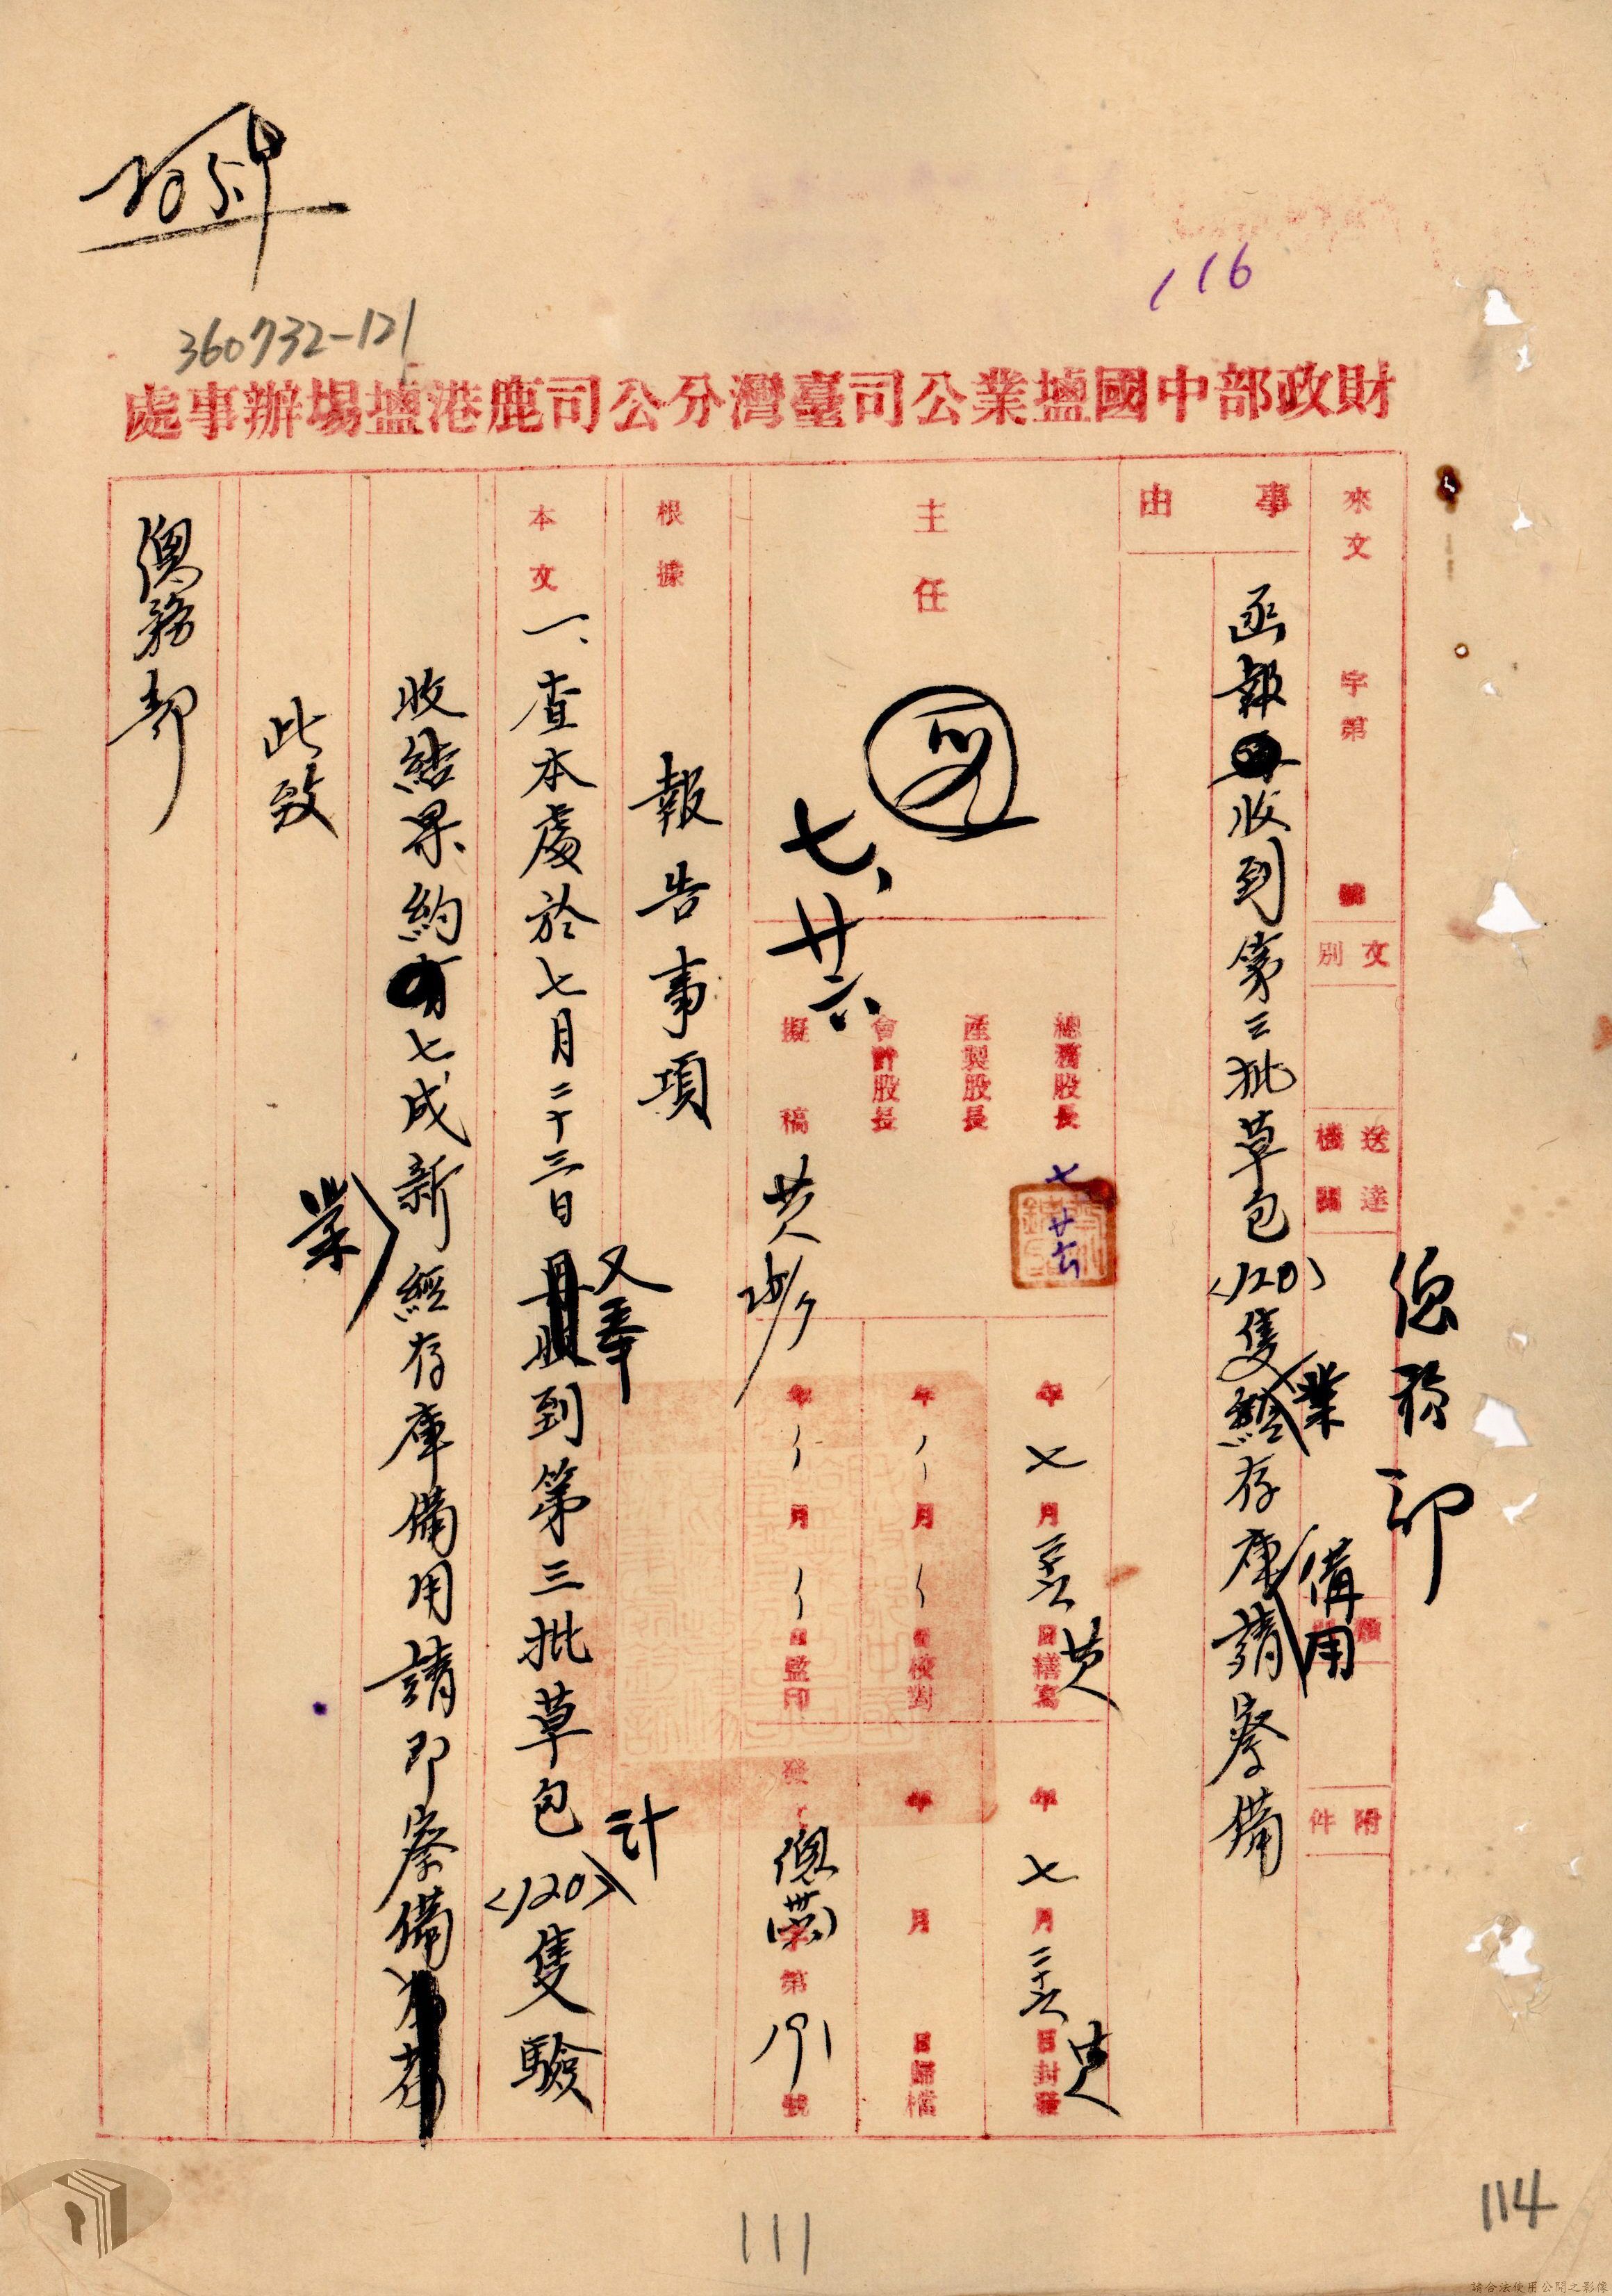 116
360732-121
財政部中國鹽業公司臺灣分公司鹿港鹽場辦事處
來文 字第 號
文別
送達機關
總務部
附件
事由
函報收到第三批草包(120)隻業經存庫備用請察備
主任
七、廿六
總務股長
七 廿六
產製股長
會計股長
擬稿
黃
年七月 日繕寫 黃
年 月 日校對
年 月 日監印
年七月二十六日封發 黃
年 月 日歸檔
字第191號
根據
報告事項
本文
一、查本處於七月二十三日又奉到第三批草包計(120)隻驗
收結果約有七成新業經存庫備用請即察備
此致
總務部
111
114
請合法使用公開之影像